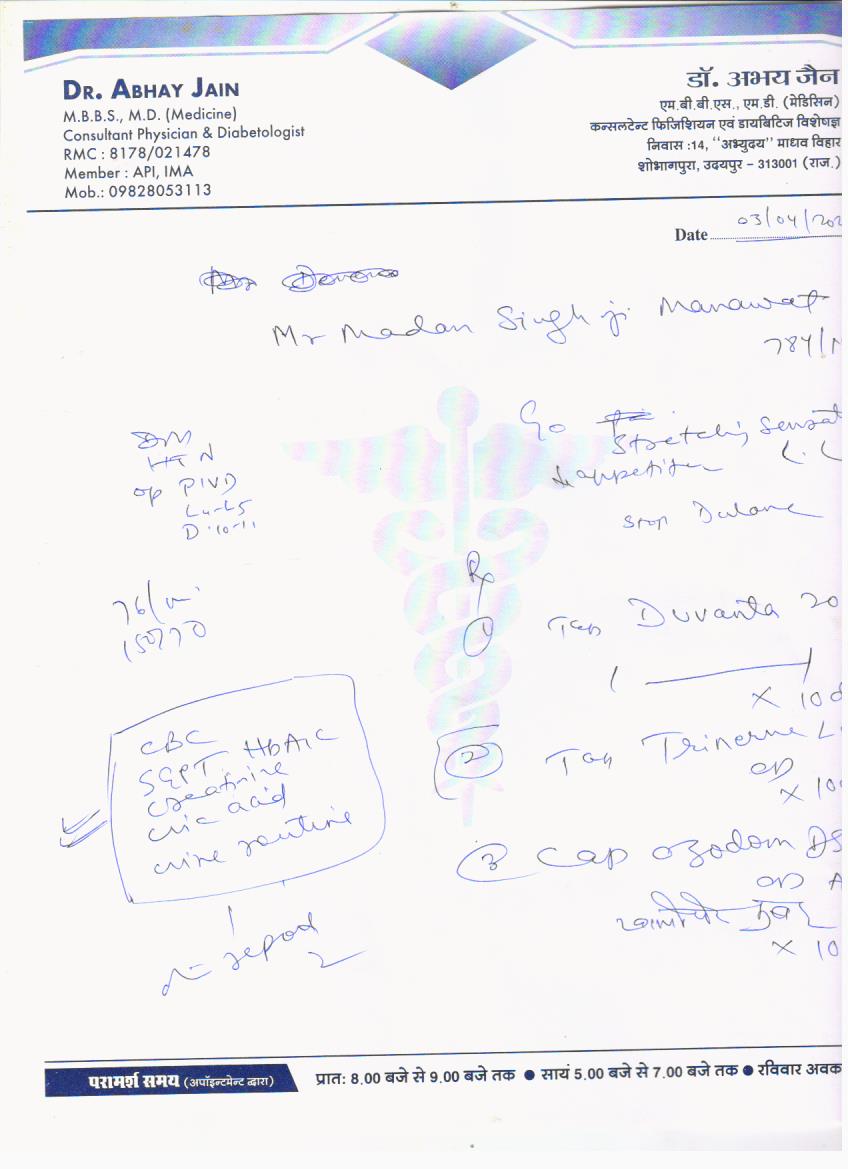 DR. ABHAY JAIN
M.B.B.S., M.D. (Medicine)
Consultant Physician & Diabetologist
RMC : 8178/021478
Member : API, IMA
Mob.: 09828053113
डॉ. अभय जैन
एम.बी.बी.एस., एम.डी. (मेडिसिन)
कन्सलटेन्ट फिजिशियन एवं डायबिटिज विशेषज्ञ
निवास :14, "अभ्युदय" माधव विहार
शोभागपुरा, उदयपुर – 313001 (राज.)
Date 03/04/202
Mr Madan Singh ji Manawat
784/M
DM
HTN
op PIVD
L4-L5
D10-11
76/
150/70
CBC
SGPT HbA1C
creatinine
uric acid
urine routine
repod
Stretching Sensat
appetite
Stop Dulane
Rx
1 Tab Duvanta 20
x 10 d
2 Tab Trinerve L
OD
x 10
3 Cap Ozodom DS
OD A
खालीपेट सुबह
x 10
परामर्श समय (अपॉइन्टमेन्ट द्वारा)
प्रात: 8.00 बजे से 9.00 बजे तक ● सायं 5.00 बजे से 7.00 बजे तक ● रविवार अवक